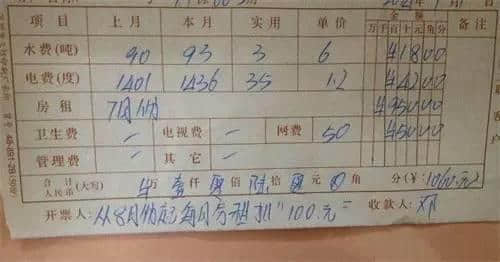 项目 上月 本月 实用 单价 金额 备注
万 千 百 十 元 角 分
水费(吨) 90 93 3 6 ¥1800
电费(度) 1401 1436 35 1.2 ¥4200
房租 7月份 ¥95000
卫生费 — 电视费 — 网费 50 ¥5000
管理费 — 其它 —
合计人民币(大写) 万 壹仟 佰 陆拾 元 0角 分(¥:1060.元)
开票人: 从8月份起每月房租扣"100.元" 收款人: